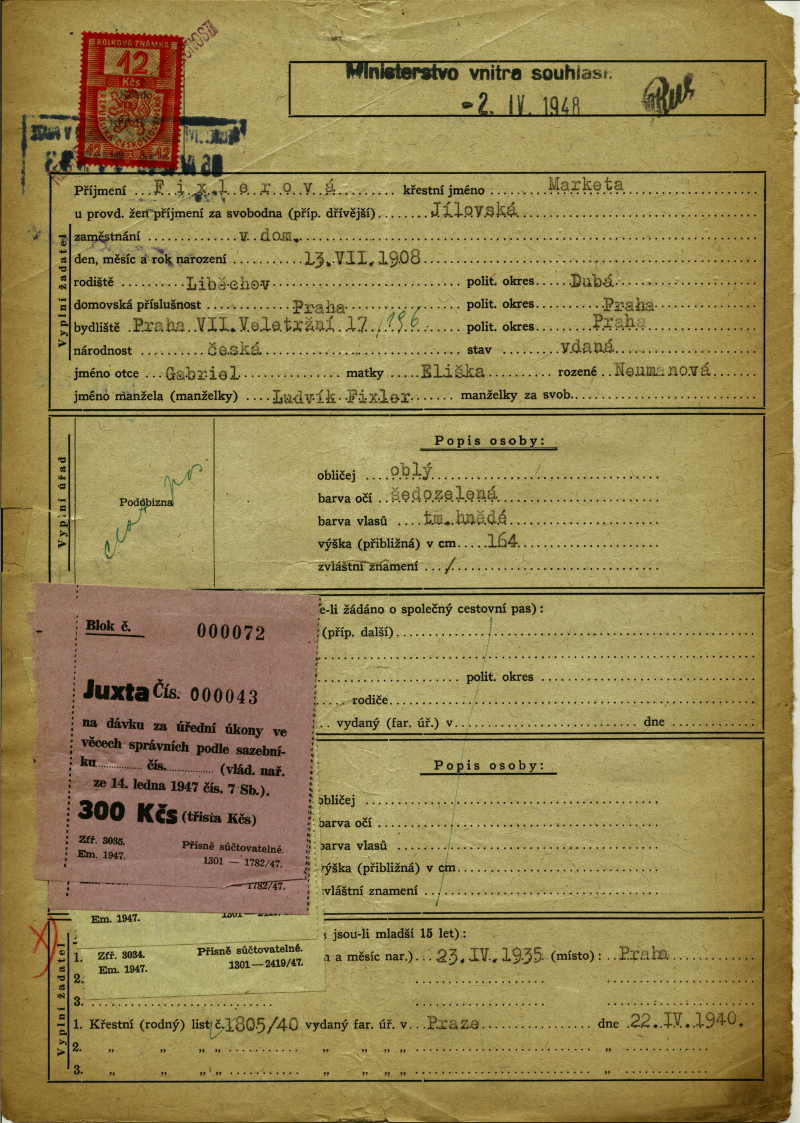 KOLKOVÁ ZNÁMKA
12
Kčs
12 12
Ministerstvo vnitra souhlasí.
-2. IV. 1948
Vyplní žadatel
Příjmení F i x l e r o v á křestní jméno Marketa
u provd. žen příjmení za svobodna (příp. dřívější) Jílovská
zaměstnání v dom.
den, měsíc a rok narození 13.VII.1908
rodiště Liběchov polit. okres Dubá
domovská příslušnost Praha polit. okres Praha
bydliště Praha VII.Veletržní 17, 196 polit. okres Praha
národnost česká stav vdaná
jméno otce Gabriel matky Eliška rozené Neumanová
jméno manžela (manželky) Ludvík Fixler manželky za svob.
Vyplní úřad
Popis osoby:
Podobizna
obličej oblý
barva očí šedozelená
barva vlasů tm. hnědá
výška (přibližná) v cm 164
zvláštní znamení /
e-li žádáno o společný cestovní pas):
(příp. další)
polit. okres
rodiče
vydaný (far. úř.) v dne
Popis osoby:
obličej
barva očí
barva vlasů
výška (přibližná) v cm
zvláštní znamení
Blok č. 000072
Juxta Čís. 000043
na dávku za úřední úkony ve
věcech správních podle sazební-
ku čís. (vlád. nař.
ze 14. ledna 1947 čís. 7 Sb.).
300 Kčs (třista Kčs)
Zfř. 3035. Přísně súčtovatelné.
Em. 1947. 1301 — 1782/47.
1782/47.
Em. 1947. 1301 — 2419/47.
Zfř. 3034. Přísně súčtovatelné.
Em. 1947. 1301—2419/47.
Vyplní žadatel
jsou-li mladší 15 let):
1. a měsíc nar.) 23.IV.1935 (místo): Praha
2.
3.
1. Křestní (rodný) list č. 1805/40 vydaný far. úř. v Praze dne 22.IV.1940.
2. „ „ „ „ „ „ „ „ „
3. „ „ „ „ „ „ „ „ „